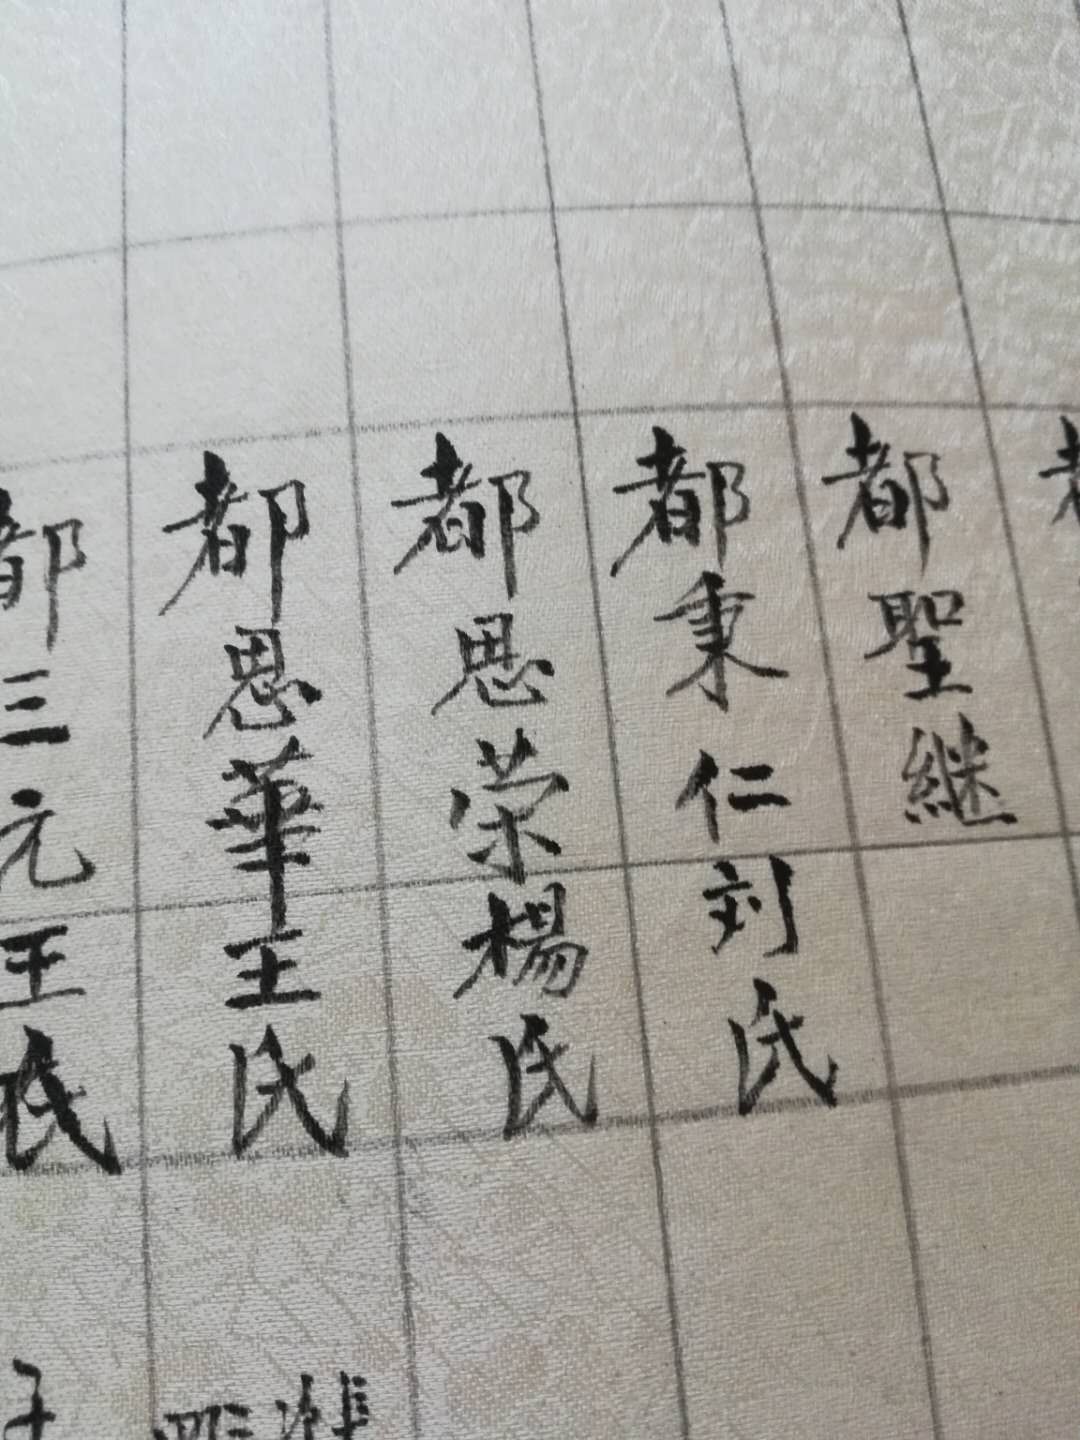 都聖継
都秉仁刘氏
都恩荣楊氏
都恩華王氏
都三元王氏
子